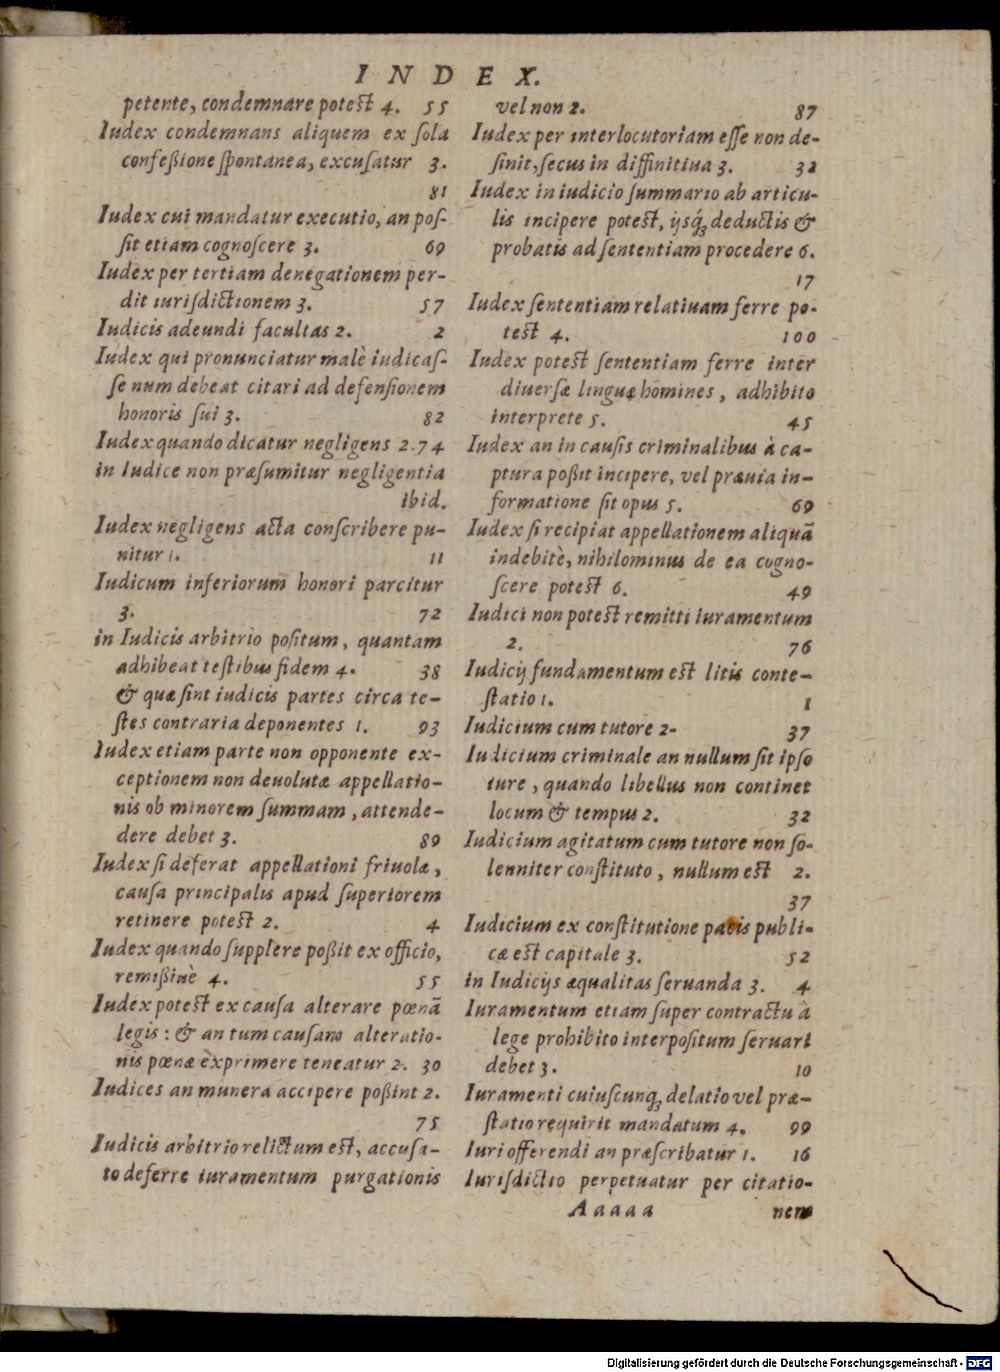 INDEX.
petente, condemnare potest 4. 55
Iudex condemnans aliquem ex ſola
confeßione ſpontanea, excuſatur 3.
81
Iudex cui mandatur executio, an poſ-
ſit etiam cognoſcere 3. 69
Iudex per tertiam denegationem per-
dit iuriſdictionem 3. 57
Iudicis adeundi facultas 2. 2
Iudex qui pronunciatur malè iudicaſ-
ſe num debeat citari ad defenſionem
honoris ſui 3. 82
Iudex quando dicatur negligens 2.74
in Iudice non præſumitur negligentia
ibid.
Iudex negligens acta conſcribere pu-
nitur 1. 11
Iudicum inferiorum honori parcitur
3. 72
in Iudicis arbitrio poſitum, quantam
adhibeat teſtibus fidem 4. 38
& quæ ſint iudicis partes circa te-
ſtes contraria deponentes 1. 93
Iudex etiam parte non opponente ex-
ceptionem non deuolutæ appellatio-
nis ob minorem ſummam, attende-
dere debet 3. 89
Iudex ſi deferat appellationi friuolæ,
cauſa principalis apud ſuperiorem
retinere potest 2. 4
Iudex quando ſupplere poßit ex officio,
remißiuè 4. 55
Iudex potest ex cauſa alterare pœnã
legis: & an tum cauſam alteratio-
nis pœnæ exprimere teneatur 2. 30
Iudices an munera accipere poßint 2.
75
Iudicis arbitrio relictum est, accuſa-
to deferre iuramentum purgationis
vel non 2. 87
Iudex per interlocutoriam eſſe non de-
ſinit, ſecus in diffinitiua 3. 32
Iudex in iudicio ſummario ab articu-
lis incipere potest, ijsq́ꝫ deductis &
probatis ad ſententiam procedere 6.
17
Iudex ſententiam relatiuam ferre po-
test 4. 100
Iudex potest ſententiam ferre inter
diuerſæ linguæ homines, adhibito
interprete 5. 45
Iudex an in cauſis criminalibus à ca-
ptura poßit incipere, vel præuia in-
formatione ſit opus 5. 69
Iudex ſi recipiat appellationem aliquã
indebitè, nihilominus de ea cogno-
ſcere potest 6. 49
Iudici non potest remitti iuramentum
2. 76
Iudicij fundamentum est litis conte-
ſtatio 1. 1
Iudicium cum tutore 2. 37
Iudicium criminale an nullum ſit ipſo
iure, quando libellus non continet
locum & tempus 2. 32
Iudicium agitatum cum tutore non ſo-
lenniter conſtituto, nullum est 2.
37
Iudicium ex conſtitutione pacis publi-
cæ est capitale 3. 52
in Iudicijs æqualitas ſeruanda 3. 4
Iuramentum etiam ſuper contractu à
lege prohibito interpoſitum ſeruari
debet 3. 10
Iuramenti cuiuſcunqꝫ delatio vel præ-
ſtatio requirit mandatum 4. 99
Iuri offerendi an præſcribatur 1. 16
Iuriſdictio perpetuatur per citatio-
Aaaaa nem
Digitalisierung gefördert durch die Deutsche Forschungsgemeinschaft - DFG